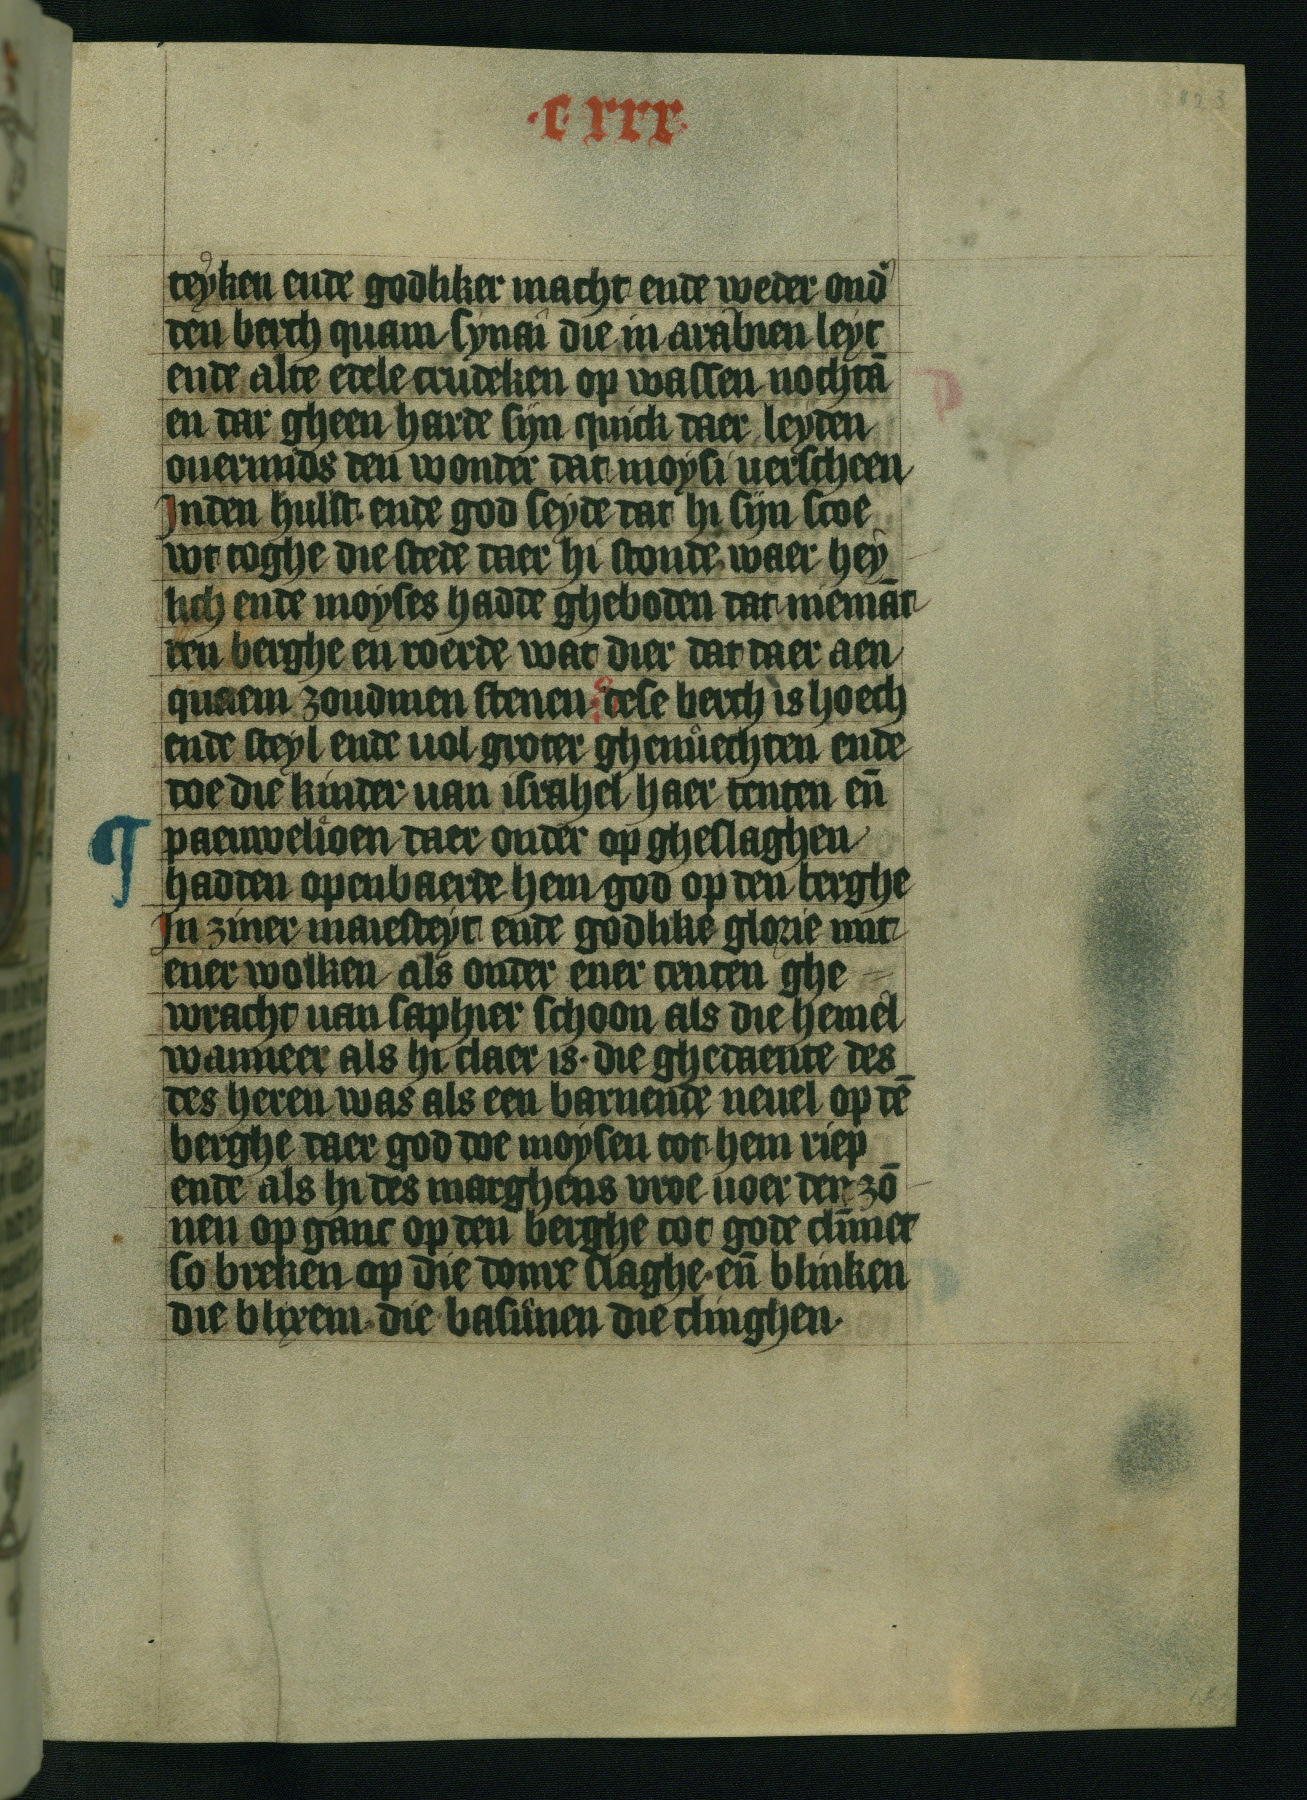 ·c· xxx·
teyken ende godliker macht ende weder ond᾽
den berch quam synai die in arabien leyt
ende alte edele crudeken op wassen nochtā
en dar gheen harde sijn quick daer leyden
ouermids den wonder dat moysi uerscheen
Inden hulst· ende god seyde dat hi sijn scoe
wt toghe die stede daer hi stonde waer hey
lich ende moyses hadde gheboden dat niemāt
den berghe en roerde wat dier dat daer aen
quaem zoudmen stenen dese berch is hoech
ende steyl ende uol groter ghenuechten ende
doe die kinder uan israhel haer tenten eñ
paeuwelioen daer onder op gheslaghen
hadden openbaerde hem god op den berghe
In ziner maiesteyt ende godlike glorie mit
ener wolken als onder ener tenten ghe
wracht uan saphier schoon als die hemel
wanneer als hi claer is· die ghedaente des
des heren was als een barnende neuel op dē
berghe daer god doe moysen tot hem riep
ende als hi des marghens vroe uoer der zō
nen op ganc op den berghe tot gode clīmet
so breken op die donre slaghe· eñ blinken
die blixem· die basunen die clinghen·